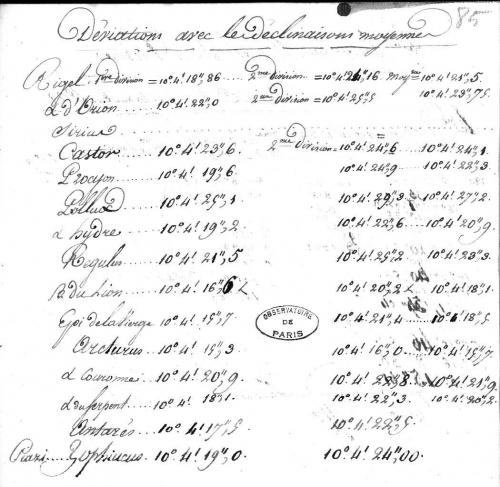 85
Déviations avec les déclinaisons moyenne
Rigel 1ère division = 10° 4' 18", 86 2me division = 10° 4' 16 moy = 10° 4' 21", 5
α d'Orion 10° 4' 22", 0 2me division = 10° 4' 25", 5 10° 4' 23", 75
Sirius
Castor 10° 4' 23", 6 2me division = 10° 4' 24", 6 10° 4' 24", 1
Procyon 10° 4' 19", 6 10° 4' 24", 9 10° 4' 22", 3
Pollux 10° 4' 25", 1 10° 4' 29", 3 10° 4' 27", 2
α hydre 10° 4' 19", 2 10° 4' 22", 6 10° 4' 20", 9
Régulus 10° 4' 21", 5 10° 4' 25", 2 10° 4' 23", 3
β du Lion 10° 4' 16", 6 10° 4' 20", 2 10° 4' 18", 1
Epi de la Vierge 10° 4' 15", 7 10° 4' 21", 4 10° 4' 18", 5
OBSERVATOIRE DE PARIS
Arcturus 10° 4' 15", 3 10° 4' 16", 0 10° 4' 15", 7
α Couronne 10° 4' 20", 9 10° 4' 22", 8 10° 4' 21", 9
α du Serpent 10° 4' 18", 1 10° 4' 22", 3 10° 4' 20", 2
Antarés 10° 4' 17", 5 10° 4' 22", 5
10° 4' 19", 0 10° 4' 24", 00